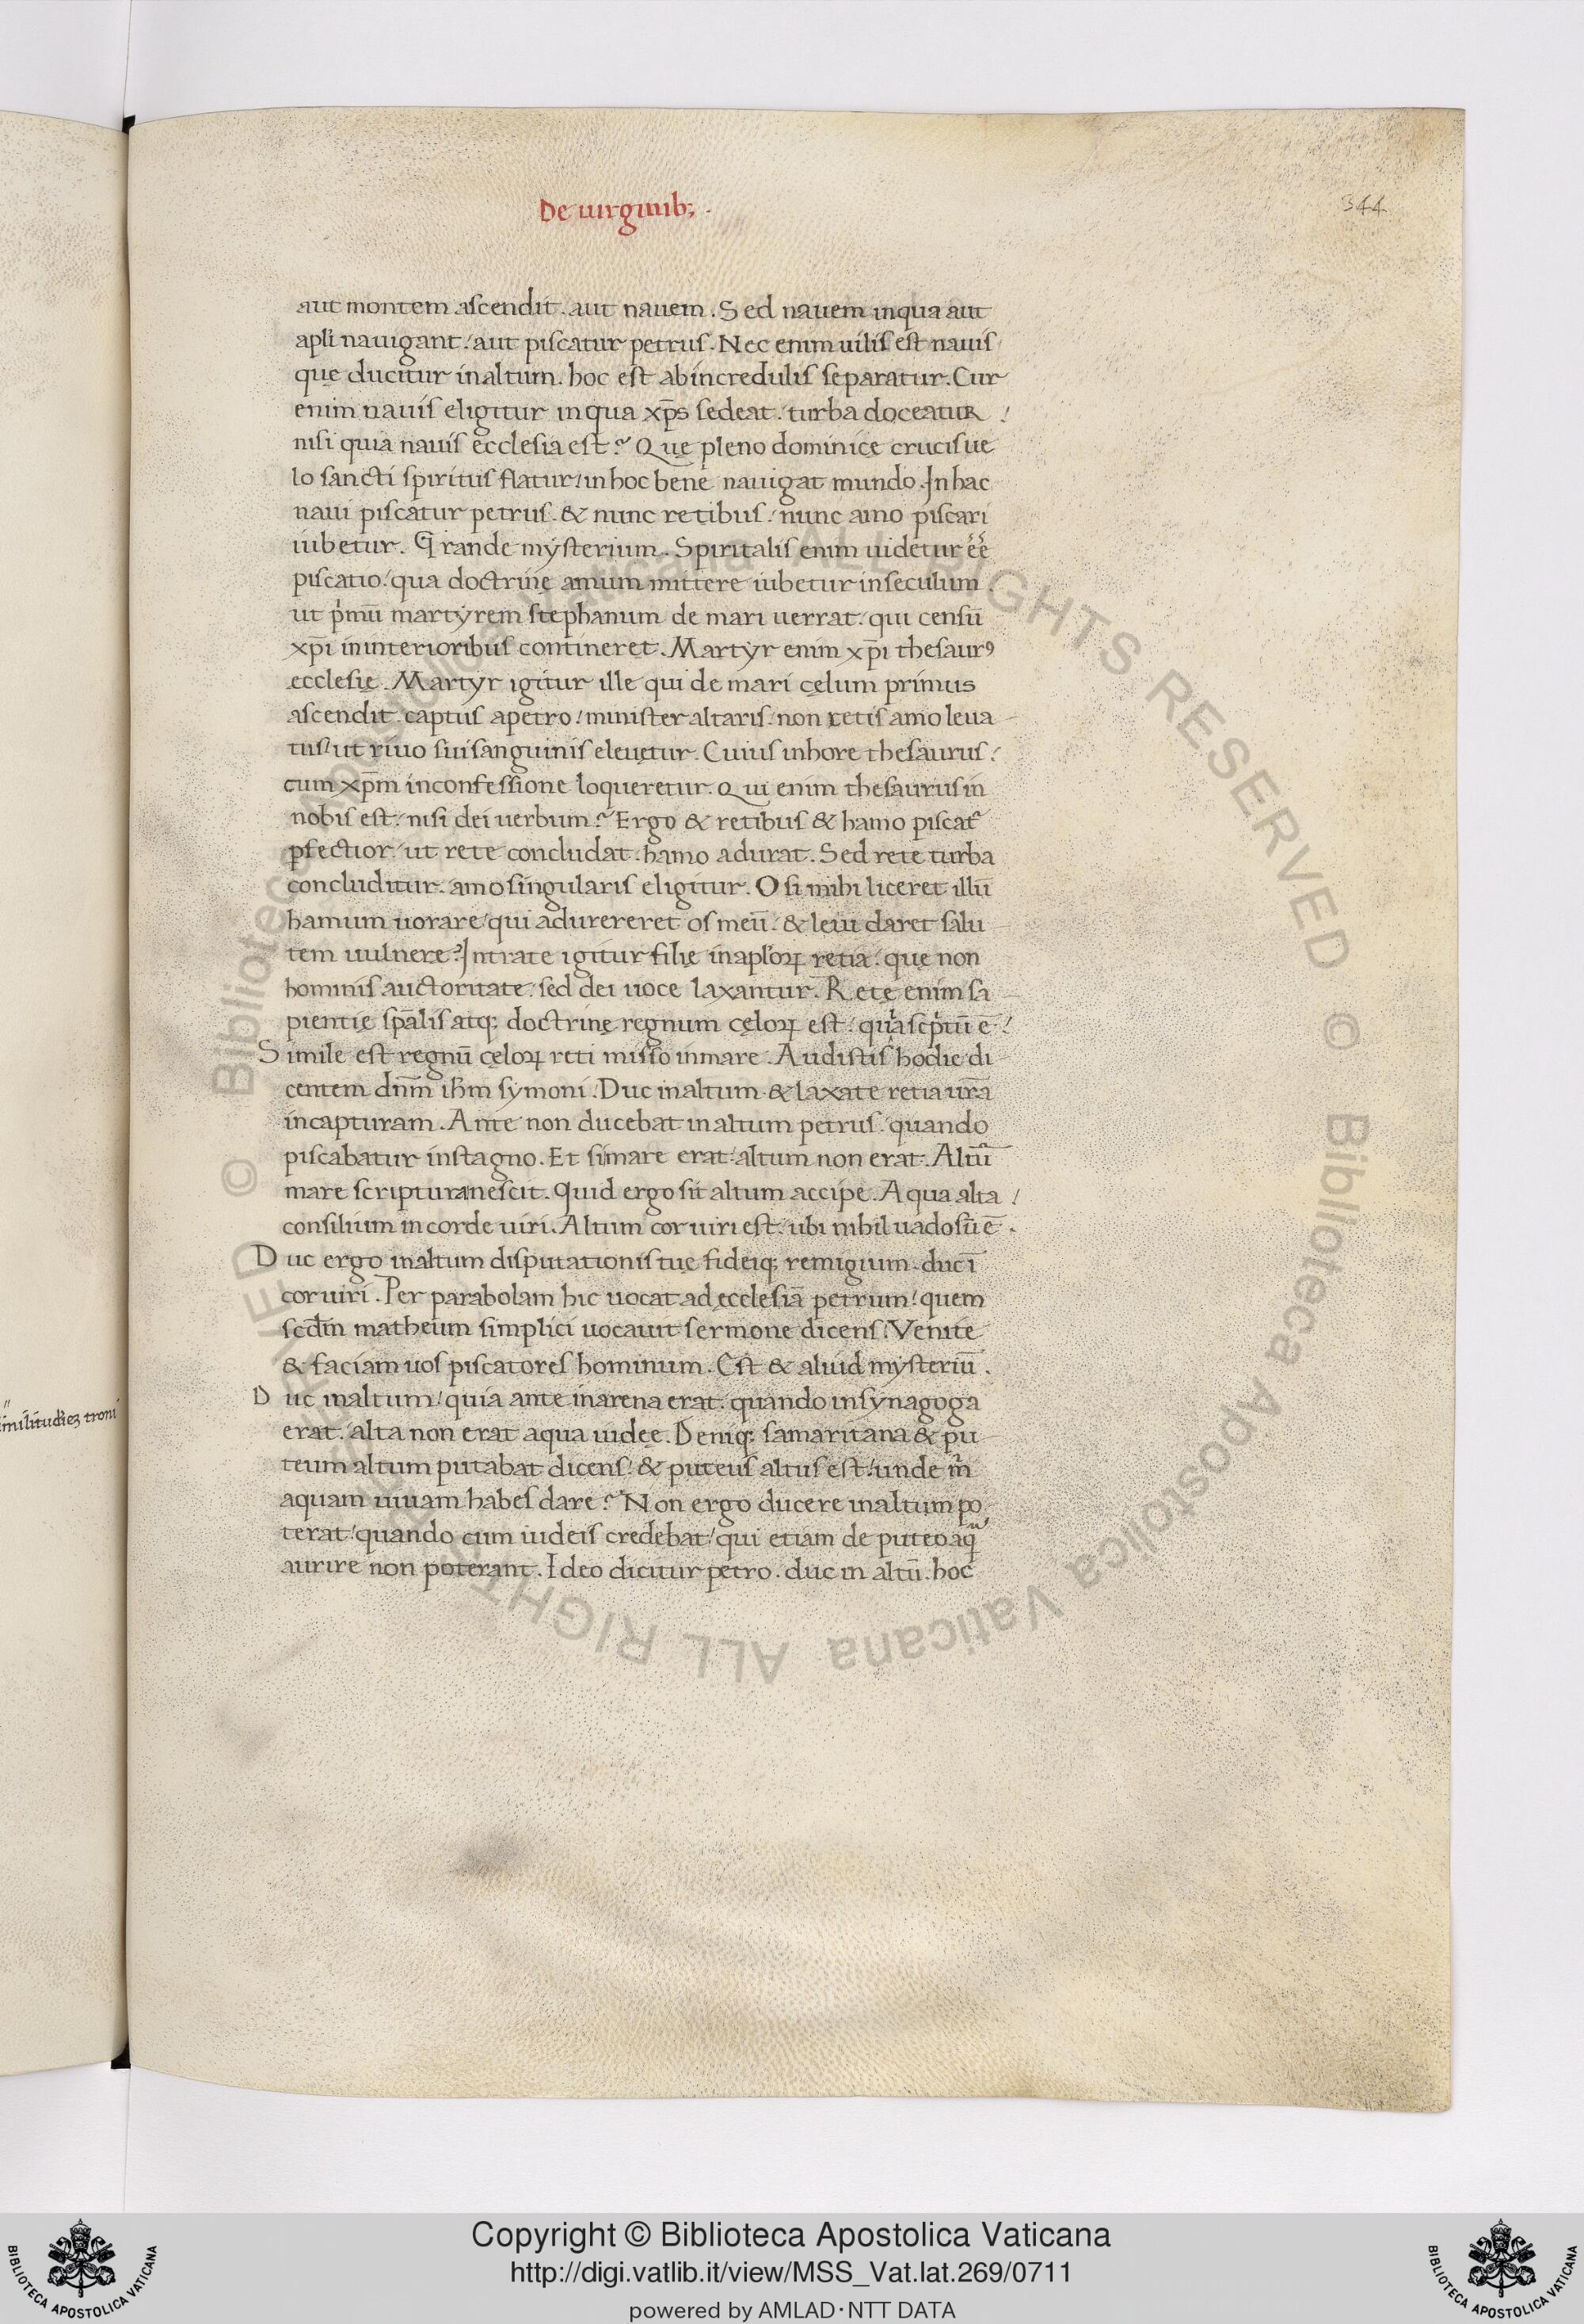 De uirginib;.
344
aut montem ascendit. aut nauem. Sed nauem inqua aut
apli nauigant. aut piscatur petrus. Nec enim uilis est nauis
quę ducitur inaltum. hoc est abincredulis separatur. Cur
enim nauis eligitur inqua xp̄s sedeat. turba doceatur!
nisi quia nauis ecclesia est? Quę pleno dominicę crucis ue
lo sancti spiritus flatur! in hoc bene nauigat mundo. In hac
naui piscatur petrus. & nunc retibus. nunc amo piscari
iubetur. Grande mysterium. Spiritalis enim uidetur ēē
piscatio. qua doctrinę amum mittere iubetur inseculum.
ut pͥmū martyrem stephanum de mari uerrat. qui censū
xp̄i ininterioribus contineret. Martyr enim xp̄i thesaurꝰ
ecclesię. Martyr igitur ille qui de mari cęlum primus
ascendit. captus apetro! minister altaris. non retis amo leua
tus! ut riuo sui sanguinis eleuetur. Cuius inhore thesaurus!
cum xp̄m inconfessione loqueretur. Qui enim thesaurus in
nobis est. nisi dei uerbum? Ergo & retibus & hamo piscat᷑
pfectior. ut rete concludat. hamo adurat. Sed rete turba
concluditur. amo singularis eligitur. O si mihi liceret illū
hamum uorare! qui adurereret os meū. & leui daret salu
tem uulnere? Intrate igitur filię inaplōꝝ retia. quę non
hominis auctoritate. sed dei uoce laxantur. Rete enim sa
pientię spālis atq; doctrinę regnum cęloꝝ est. quͥa scpͥtū ē!
Simile est regnū cęloꝝ reti misso inmare. Audistis hodie di
centem dn̄m ih̄m symoni. Duc inaltum & laxate retia ur̄a
incapturam. Ante non ducebat inaltum petrus. quando
piscabatur instagno. Et si mare erat. altum non erat. Altū
mare scriptura nescit. Quid ergo sit altum accipe. Aqua alta!
consilium in corde uiri. Altum cor uiri est. ubi nihil uadosū ē.
Duc ergo inaltum disputationis tuę fideiq; remigium. duc ī
cor uiri. Per parabolam hic uocat ad ecclesiā petrum! quem
scd̄m matheum simplici uocauit sermone dicens! Venite
& faciam uos piscatores hominum. Est & aluid mysteriū.
Duc inaltum! quia ante inarena erat. quando insynagoga
erat. alta non erat aqua iudeę. Deniq; samaritana & pu
teum altum putabat dicens! & puteus altus est! unde m̄
aquam uiuam habes dare? Non ergo ducere inaltum po
terat! quando cum iudeis credebat! qui etiam de puteo aq̄
aurire non poterant. Ideo dicitur petro. duc in altū. hoc
Copyright © Biblioteca Apostolica Vaticana
http://digi.vatlib.it/view/MSS_Vat.lat.269/0711
powered by AMLAD·NTT DATA
BIBLIOTECA APOSTOLICA VATICANA
BIBLIOTECA APOSTOLICA VATICANA
© Biblioteca Apostolica Vaticana ALL RIGHTS RESERVED © Biblioteca Apostolica Vaticana ALL RIGHTS RESERVED